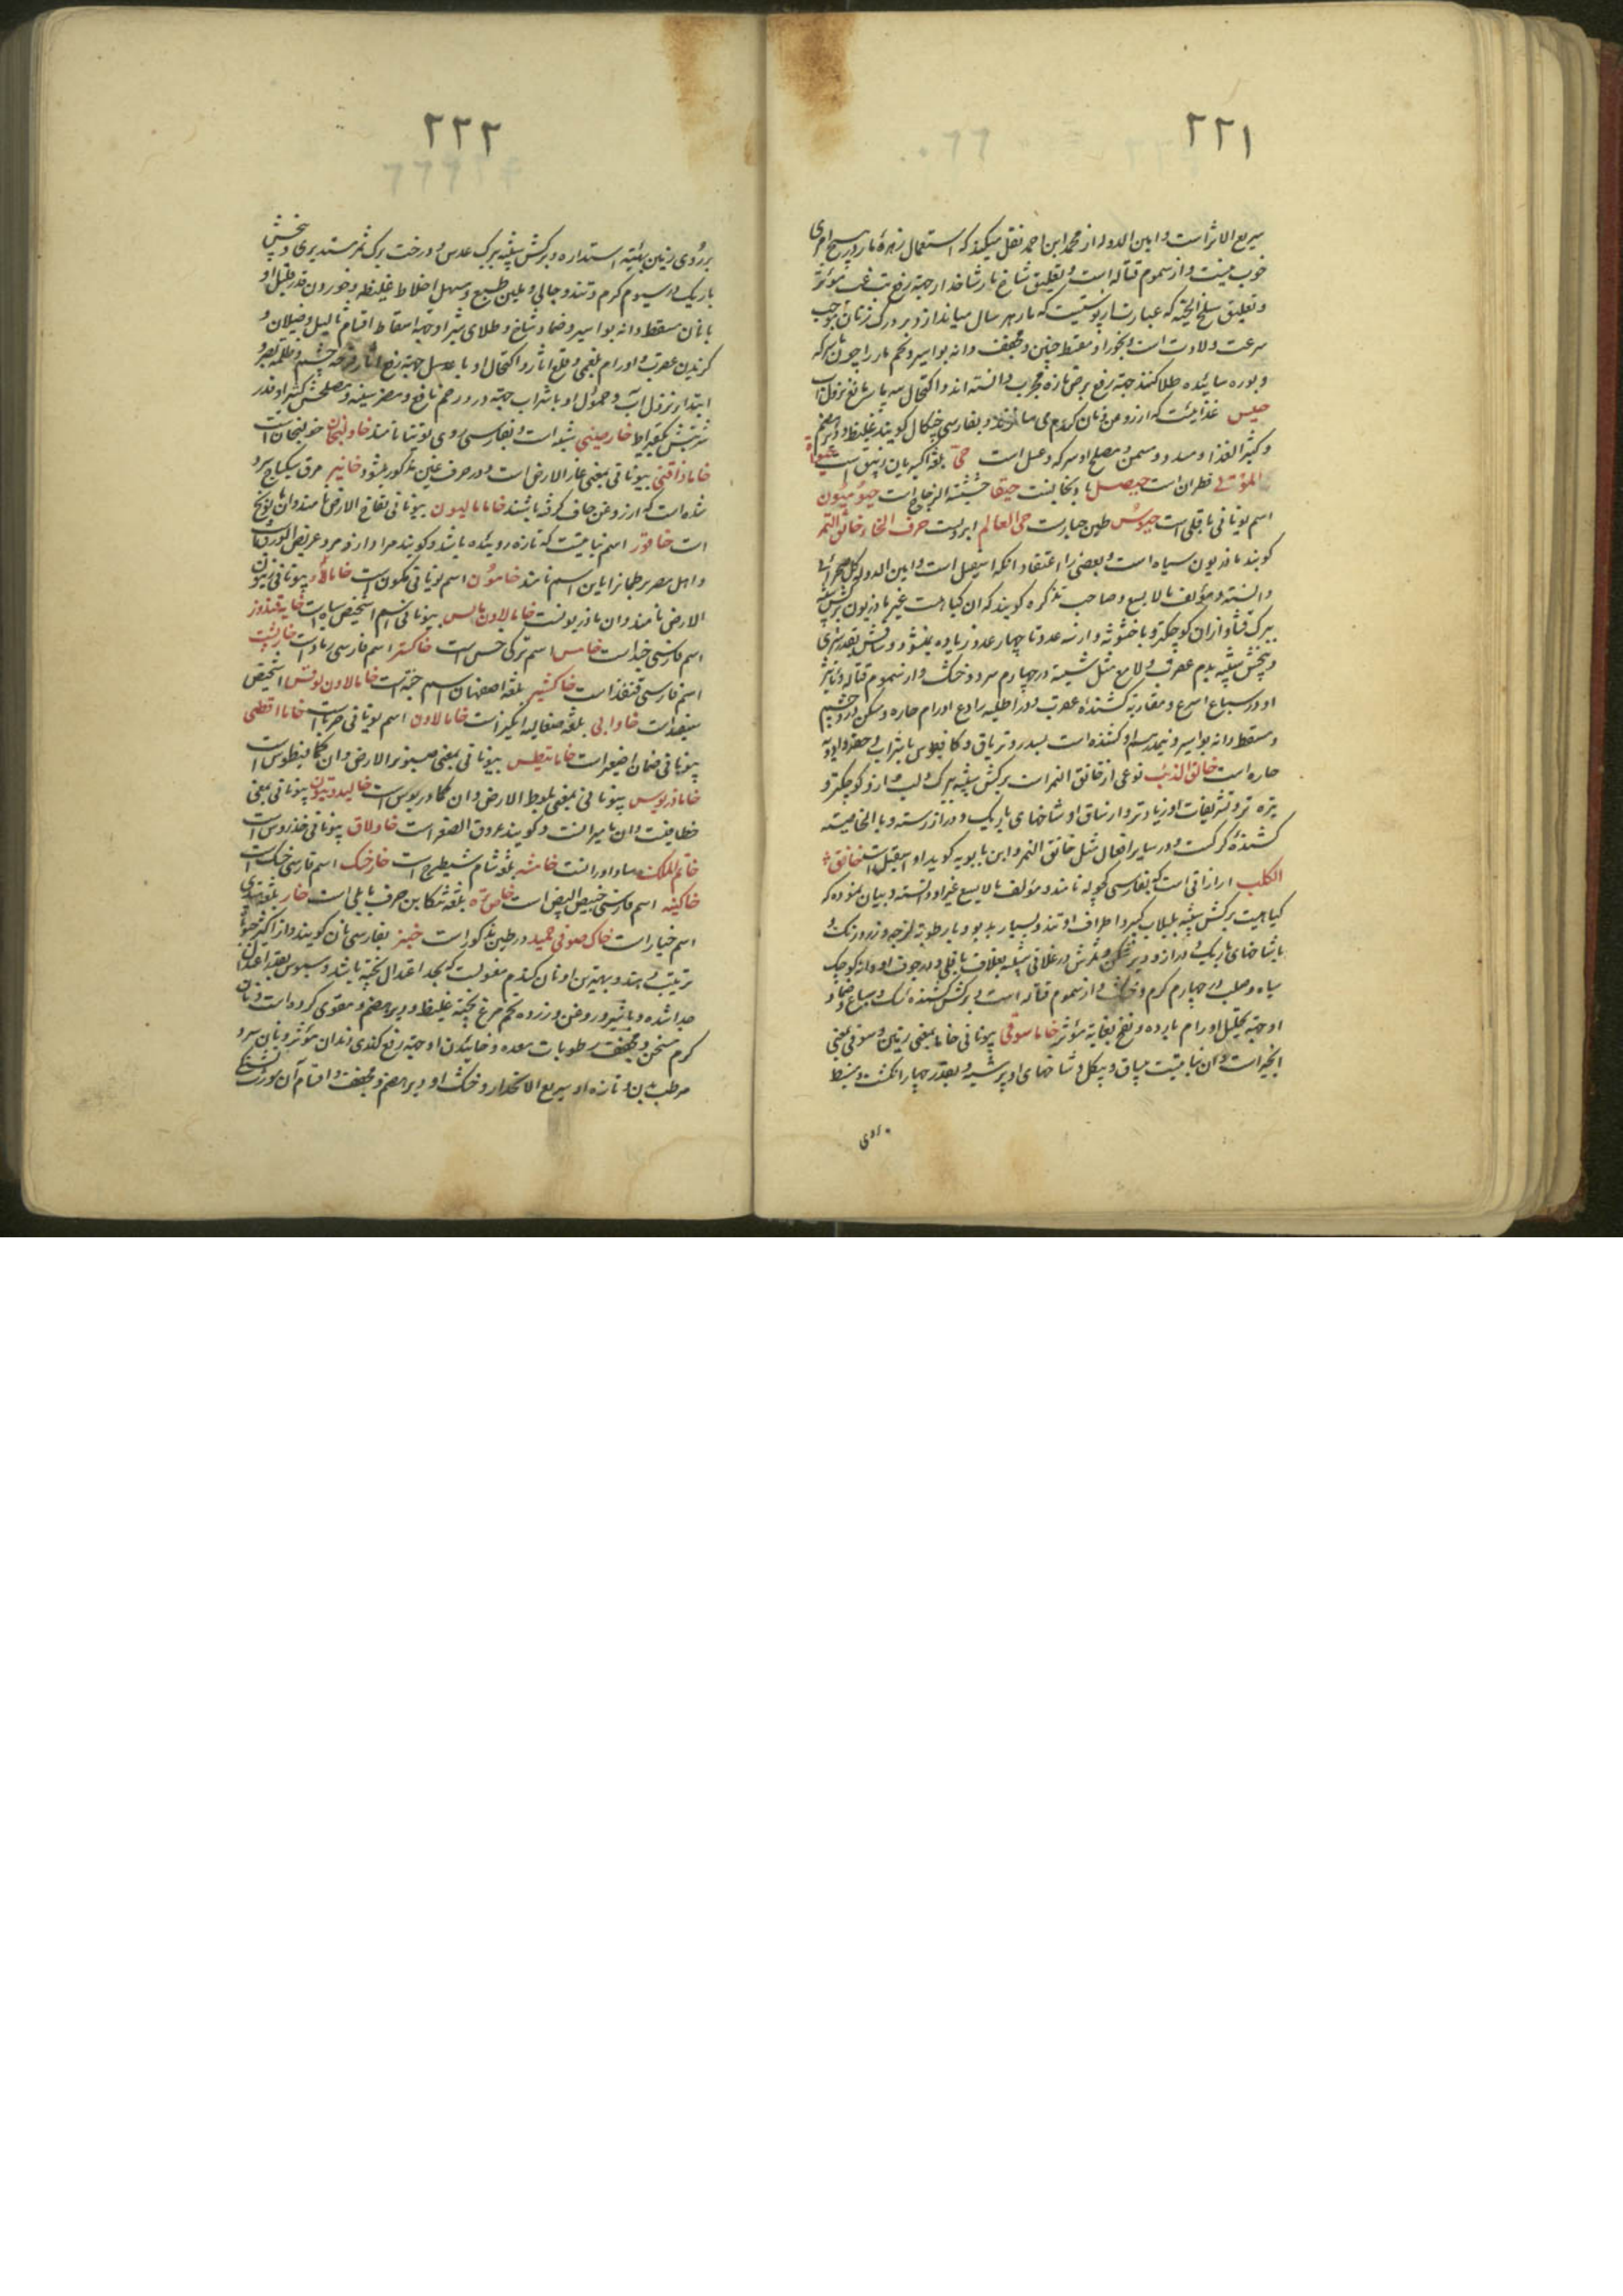 ۲۲۱
سریع الاثر است و امین الدوله از محمد ابن احمد نقل میکند که استعمال زهرهٔ مار در هیچ امری
خوب نیست و از سموم قتاله است و تعلیق شاخ مار شاخدار جهة رفع تب غب مؤثر
و تعلیق سلخ الحیّه که عبارت از پوستیست که مار هر سال میاندازد بر ورک زنان موجب
سرعت ولادت است و بخور او مسقط جنین و مجفف دانه بواسیر و تخم مار را چون با سرکه
و بوره سائیده طلا کنند جهة رفع برص تازه مجرب دانسته اند و اکتحال سه بار مانع نزول آب
حیس غذائیست که از روغن و نان کرم می سازند و بفارسی چنکال کویند غلیظ و دیرهضم
و کثیر الغذا و مسدد و مسمن و مصلح او سرکه و عسل است حیّ بلغة اکسیریان زیبق است حیوة
الموتی قطران است حیصل بادنجانست حیقا حشیشة الزجاج است حیومیون
اسم یونانی باقلی است حیوس طین جبارست حی العالم ابرونست حرف الخاء خانق النمر
کویند ماذریون سیاه است و بعضی را اعتقاد آنکه اسقیل است و امین الدوله کل صحرائی
دانسته و مؤلف مالایسع و صاحب تذکره کویند که ان کیاهیست غیر ماذریون برکش شبیه
ببرک قثا و ازان کوچکتر و با خشونة و از سه عدد تا چهار عدد زیاده نمیشود و ساقش بقدر شبری
و بیخش شبیه بدم عقرب و لامع مثل شیشه در چهارم سرد و خشک و از سموم قتاله و تاثیر
او در سباع اسرع و مقاربة کشنده عقرب و در اطلیه رادع اورام حاره و مسکن درد چشم
و مسقط دانه بواسیر و نیمدرهم او کشنده است بسدر و تریاق و کافیطوس با شراب و حقنه و ادویه
حاره است خانق الذئب نوعی از خانق النمر است برکش شبیه ببرک دلب و از و کوچکتر و
تیره تر و تشریفات او زیادتر و از ساق او شاخهای باریک و دراز رسته و بالخاصیته
کشندهٔ کرکست و در سایر افعال مثل خانق النمر و ابن بابویه کوید او اسقیل است خانق
الکلب اراراقی است که بفارسی کچوله نامند و مؤلف مالایسع غیر او دانسته و بیان نموده که
کیاهیست برکش شبیه بلبلاب کبیر و اطراف او تند و بسیار بدبو و با رطوبة لزجه و زرد رنک و
با شاخهای باریک و دراز و دیر شکن و ثمرش در غلافی شبیه بغلاف باقلی و در جوف او دانه کوچک
سیاه و صلب در چهارم کرم و خشک و از سموم قتاله است و برکش کشنده سک و سباع و ضماد
او جهة تحلیل اورام بارده و نضج بغایة مؤثر خاماسوقی بیونانی خاما بمعنی زمین و سوقی بمعنی
انجیر است و ان نباتیست بیساق و بیکل و شاخهای او پرشیر و بقدر چهار انکشت و منبسط
بر روی
۲۲۲
بر روی زمین بهیئة استداره و برکش شبیه ببرک عدس و در تحت برک ثمر مستدیری و بیخش
باریک در سیوم کرم و تند و جالی و ملین طبع و مسهل اخلاط غلیظه و خوردن قدر قلیل او
با نان مسقط دانه بواسیر و ضماد شاخ و طلای شیر او جهة اسقاط اقسام ثآلیل و خیلان و
کزیدن عقرب و اورام بلغمی و قلع آثار و اکتحال او با عسل جهة رفع آثار قرحه چشم و ظلمة بصر و
ابتدای نزول آب و حمول او با شراب جهة درد رحم نافع و مضر سینه و مصلحش کثیرا و قدر
شربتش یکقیراط خار مینی شبه است و بفارسی روی توتیا نامند خاولنجان خولنجان است
خاماذافنی بیونانی بمعنی غار الارض است و در حرف غین مذکور میشود خانیر مرق سکباج سرد
شده است که از روغن صاف کرفته باشند خامامالیون بیونانی تفاح الارض نامند و ان بابونج
است خافور اسم نباتیست که تازه روئیده باشد و کویند مراد از و مرو عریض الورق است
و اهل مصر برطمانرا باین اسم نامند خامون اسم یونانی کمون است خامالاو بیونانی زیتون
الارض نامند و ان ماذریونست خامالاون مالس بیونانی اسم اشخیص سیاه است خایه قندوز
اسم فارسی جندا است خامس اسم ترکی خس است خاکستر اسم فارسی رماد است خارپشت
اسم فارسی قنفذ است خاکشیر بلغة اصفهان اسم خبه است خامالاون لوقس اشخیص
سفید است خاوانی بلغة صقالبه انکبین است خامالاون اسم یونانی حرباست خامااقطی
بیونانی خمان اصغر است خامانیطس بیونانی بمعنی صنوبر الارض و ان کمافیطوس است
خاماذریوس بیونانی بمعنی بلوط الارض و ان کمادریوس است خالیدونیون بیونانی بمعنی
خطافیست و ان مامیرانست و کویند عروق الصفر است خاولاق بیونانی خندروس است
خاتم الملک داورانست خامشه بلغة شام شیطرج است خارخسک اسم فارسی حسک است
خاکینه اسم فارسی خبیص البیض است خاص تره بلغة تنکابن حرف بابلی است خار بلغة هندی
اسم خیار است خاک صوفی حمید در طین مذکور است خبز بفارسی نان کویند و از اکثر حبوب
ترتیب دهند و بهترین او نان کندم مغسولست که بحد اعتدال پخته باشد و سبوس بقدر اعتدال
جدا شده و با شیر و روغن و زرده تخم مرغ پخته غلیظ و دیر هضم و مقوی کرده است و نان
کرم مسخن و مجفف رطوبات معده و خائیدن او جهة رفع کندی دندان مؤثر و نان سرد
مرطب بدن و تازه او سریع الانحدار و خشک او دیر هضم و مجفف و اقسام آن مورث تشنکی